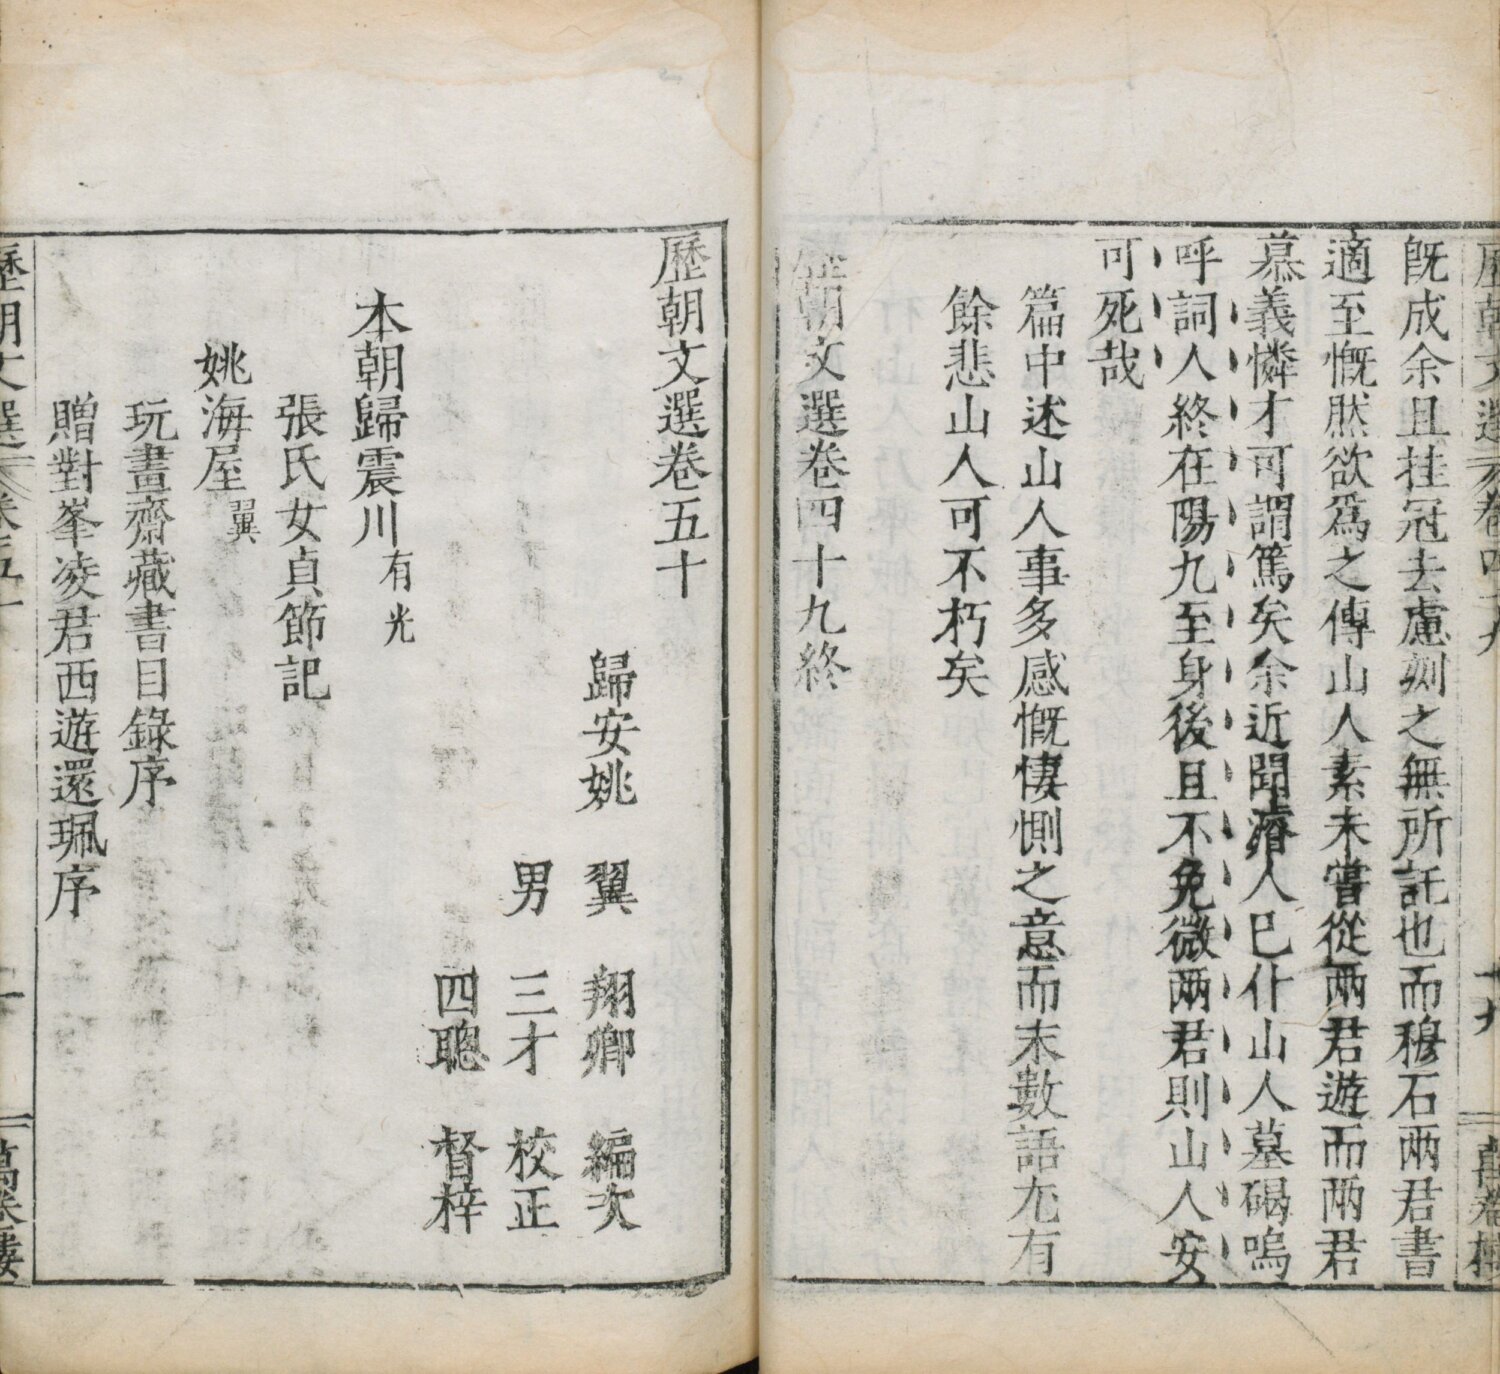 歷朝文選 卷四十九 十九 萬卷樓
旣成余且挂冠去慮剡之無所託也而穆石兩君書
適至慨然欲爲之傳山人素未嘗從兩君遊而兩君
慕義憐才可謂篤矣余近聞濬人已仆山人墓碣嗚
呼詞人終在陽九至身後且不免微兩君則山人安
可死哉
篇中述山人事多感慨悽惻之意而末數語尤有
餘悲山人可不朽矣
歷朝文選卷四十九終
歷朝文選卷五十
歸安姚 翼 翔卿 編次
男 三才 校正
四聰 督梓
本朝歸震川有光
張氏女貞節記
姚海屋翼
玩畫齋藏書目錄序
贈對峯凌君西遊還珮序
歷朝文選 卷五十 一 萬卷樓